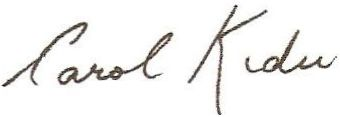 Carol Kidu